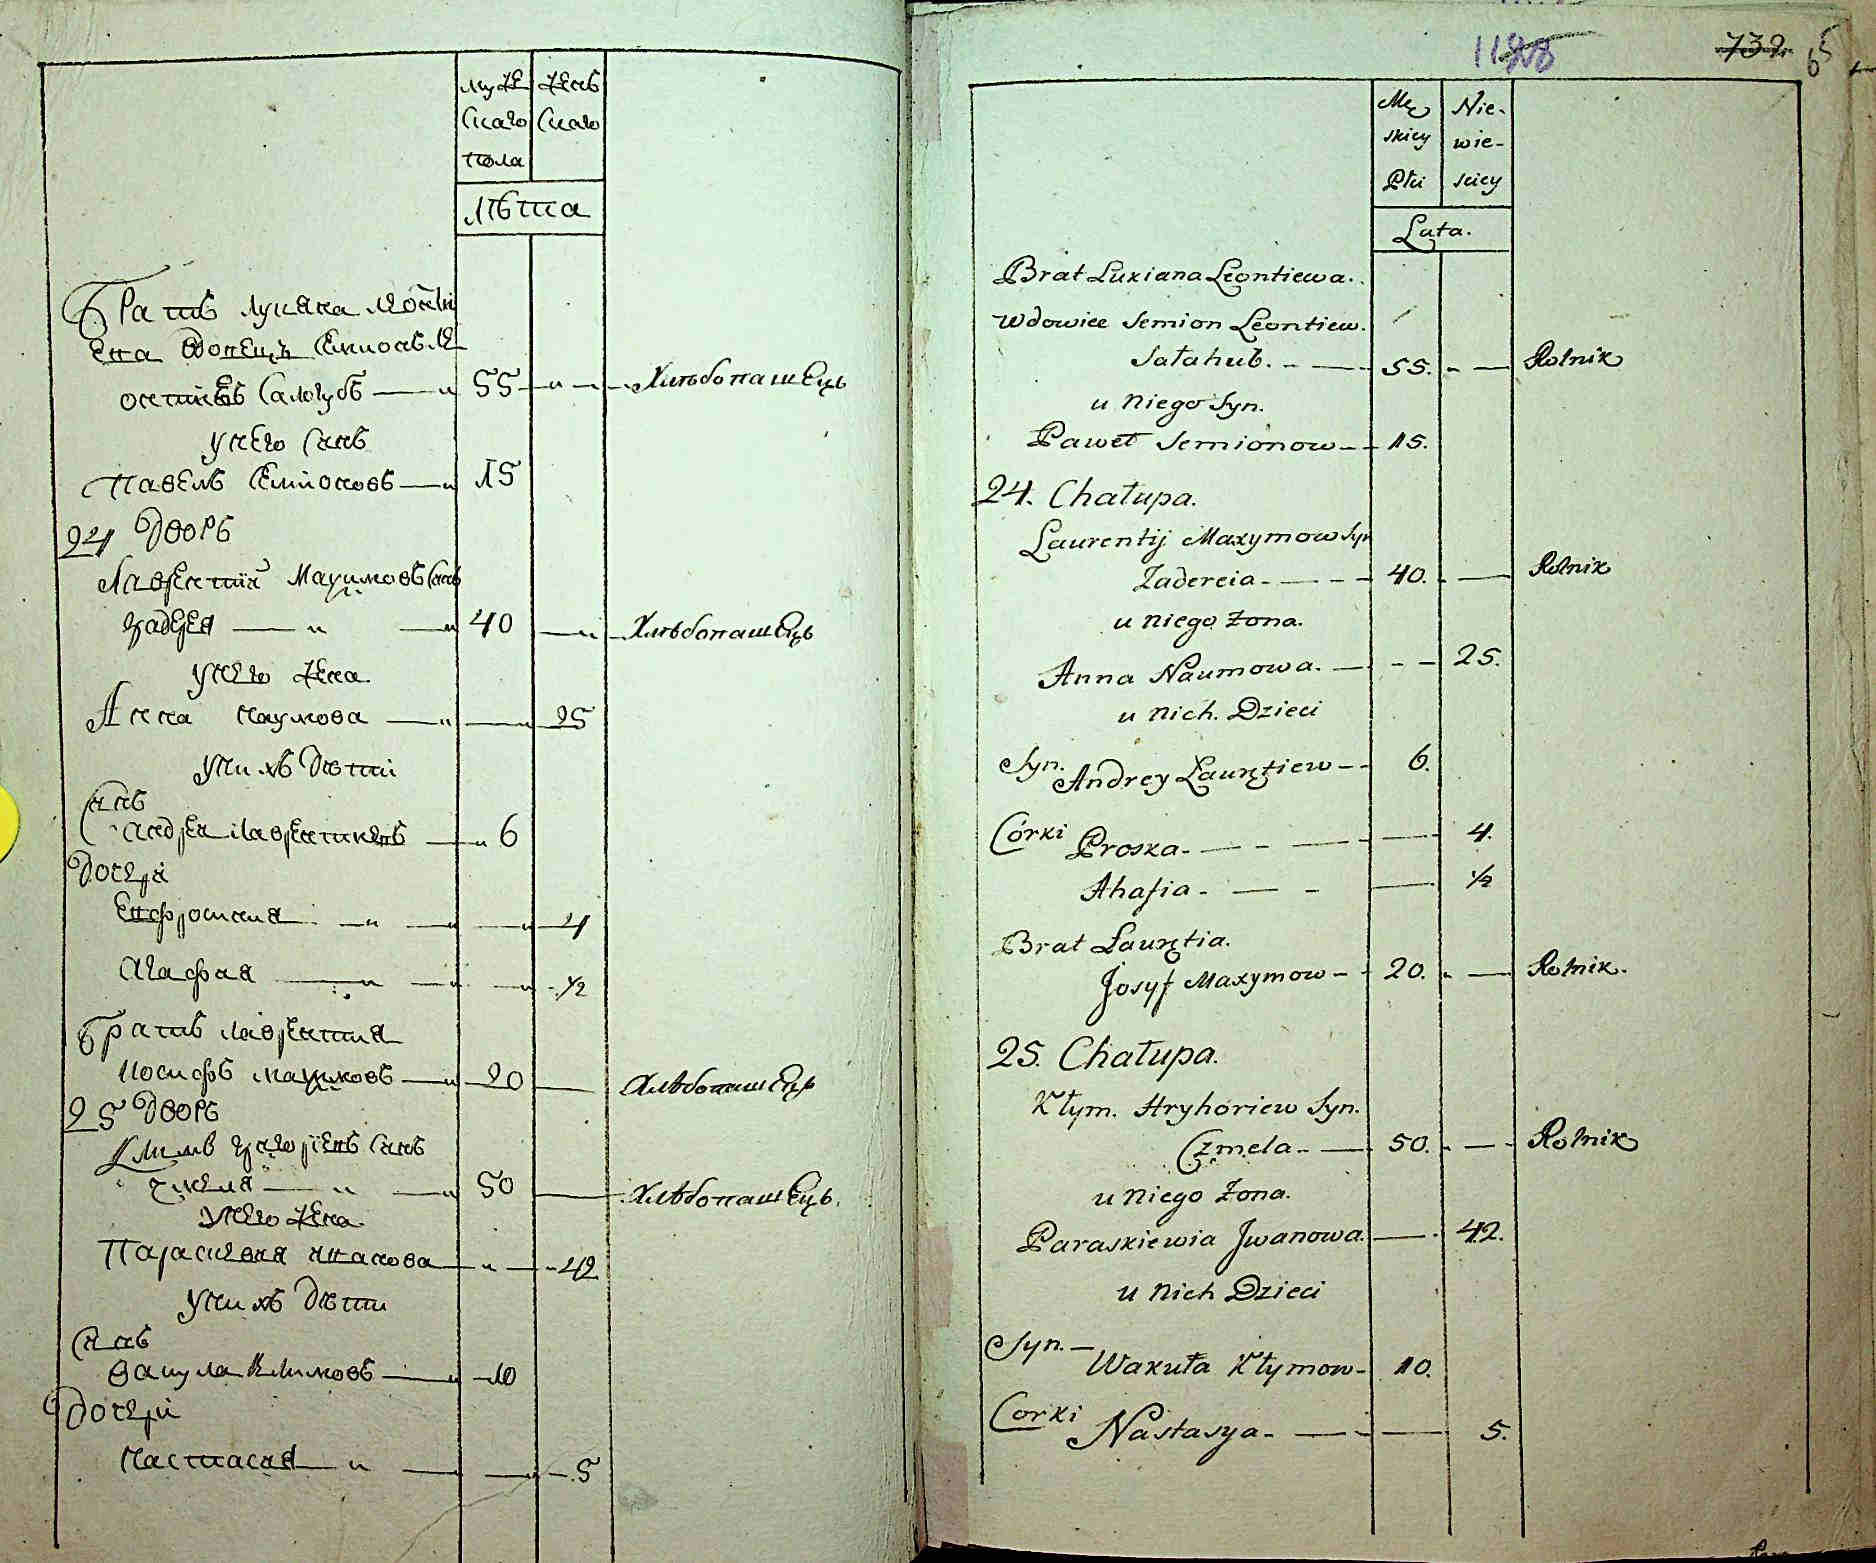 муже
скаго
пола
женс
скаго
лѣта
Братъ Лукяна Леонті
ева вдовецъ Семионъ Ле
онтиевъ Салогубъ 55 Хлѣбопашецъ
у него сынъ
Павелъ Семионовъ 15
24 дворъ
Лаврентий Махимовъ сынъ
Задерея 40 Хлѣбопашецъ
у него жена
Анна Наумова 25
у нихъ дѣти
сынъ
Андрей Лаврентиевъ 6
дочери
Евфросиния 4
Агафия 1/2
братъ Лаврентия
Иосифъ Махимовъ 20 Хлѣбопашецъ
25 дворъ
Климъ Григориевъ сынъ
Чмеля 50 Хлѣбопашецъ.
у него жена
Параскевия Иванова 42
у нихъ дѣти
сынъ
Вакула Климовъ 10
дочери
Настасия 5
732 65
Mę
skiey
Płci
Nie-
wie-
sciey
Lata.
Brat Lukiana Leontiewa.
wdowiec Semion Leontiew.
Sałahub. 55. Rolnik
u niego Syn.
Paweł Semionow 15.
24. Chałupa.
Laurentij Maxymow Syn
Zadereia 40. Rolnik
u niego Żona.
Anna Naumowa. 25.
u nich. Dzieci
Syn. Andrey Laurętiew 6.
Córki Proska 4.
Ahafia 1/2
Brat Laurętia.
Josyf Maxymow 20. Rolnik.
25. Chałupa.
Kłym. Hryhoriew Syn.
Czmela 50. Rolnik
u niego Żona.
Paraskiewia Jwanowa. 42.
u nich Dzieci
Syn. Wakuła Kłymow 10.
Corki Nastasya 5.